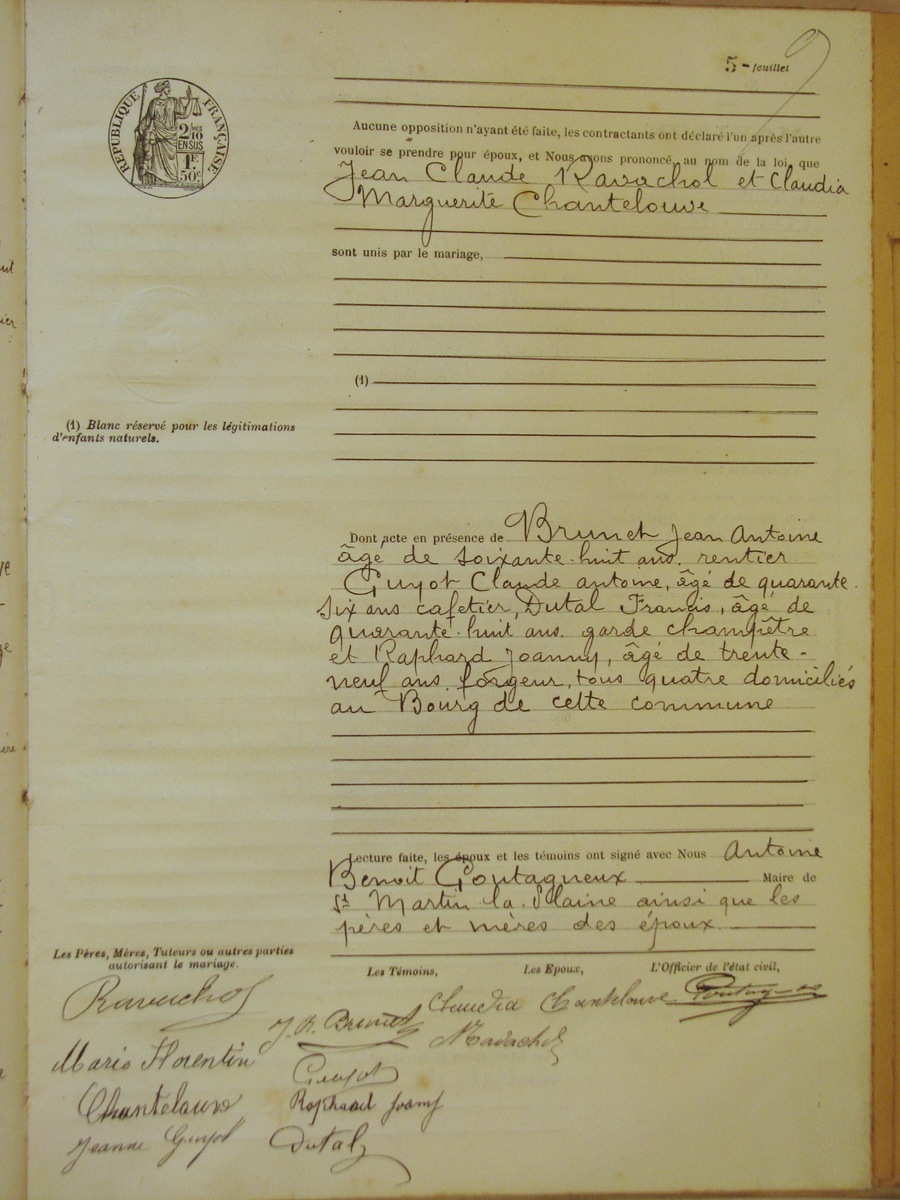 5 - feuillet
RÉPUBLIQUE FRANÇAISE
2/10
EN SUS
1F
50c
Aucune opposition n'ayant été faite, les contractants ont déclaré l'un après l'autre
vouloir se prendre pour époux, et Nous avons prononcé, au nom de la loi, que
Jean Claude Ravachol et Claudia
Marguerite Chantelouve
sont unis par le mariage,
(1)
(1) Blanc réservé pour les légitimations
d'enfants naturels.
Dont acte en présence de Brunet Jean Antoine
âgé de soixante-huit ans. rentier
Guyot Claude antoine, âgé de quarante-
six ans cafetier, Dutal Francis, âgé de
quarante-huit ans. garde champêtre
et Raphard Joanny, âgé de trente-
neuf ans forgeur, tous quatre domiciliés
au Bourg de cette commune
Lecture faite, les époux et les témoins ont signé avec Nous Antoine
Benoit Goutagneux Maire de
St Martin la Plaine ainsi que les
pères et mères des époux
Les Pères, Mères, Tuteurs ou autres parties
autorisant le mariage.
Les Témoins,
Les Epoux,
L'Officier de l'état civil,
Ravachol
J. A. Brunet
Claudia Chantelouve
Ravachol
Marie Florentin
Guyot
Chantelouve
Raphard Joany
Jeanne Guyot
Dutal